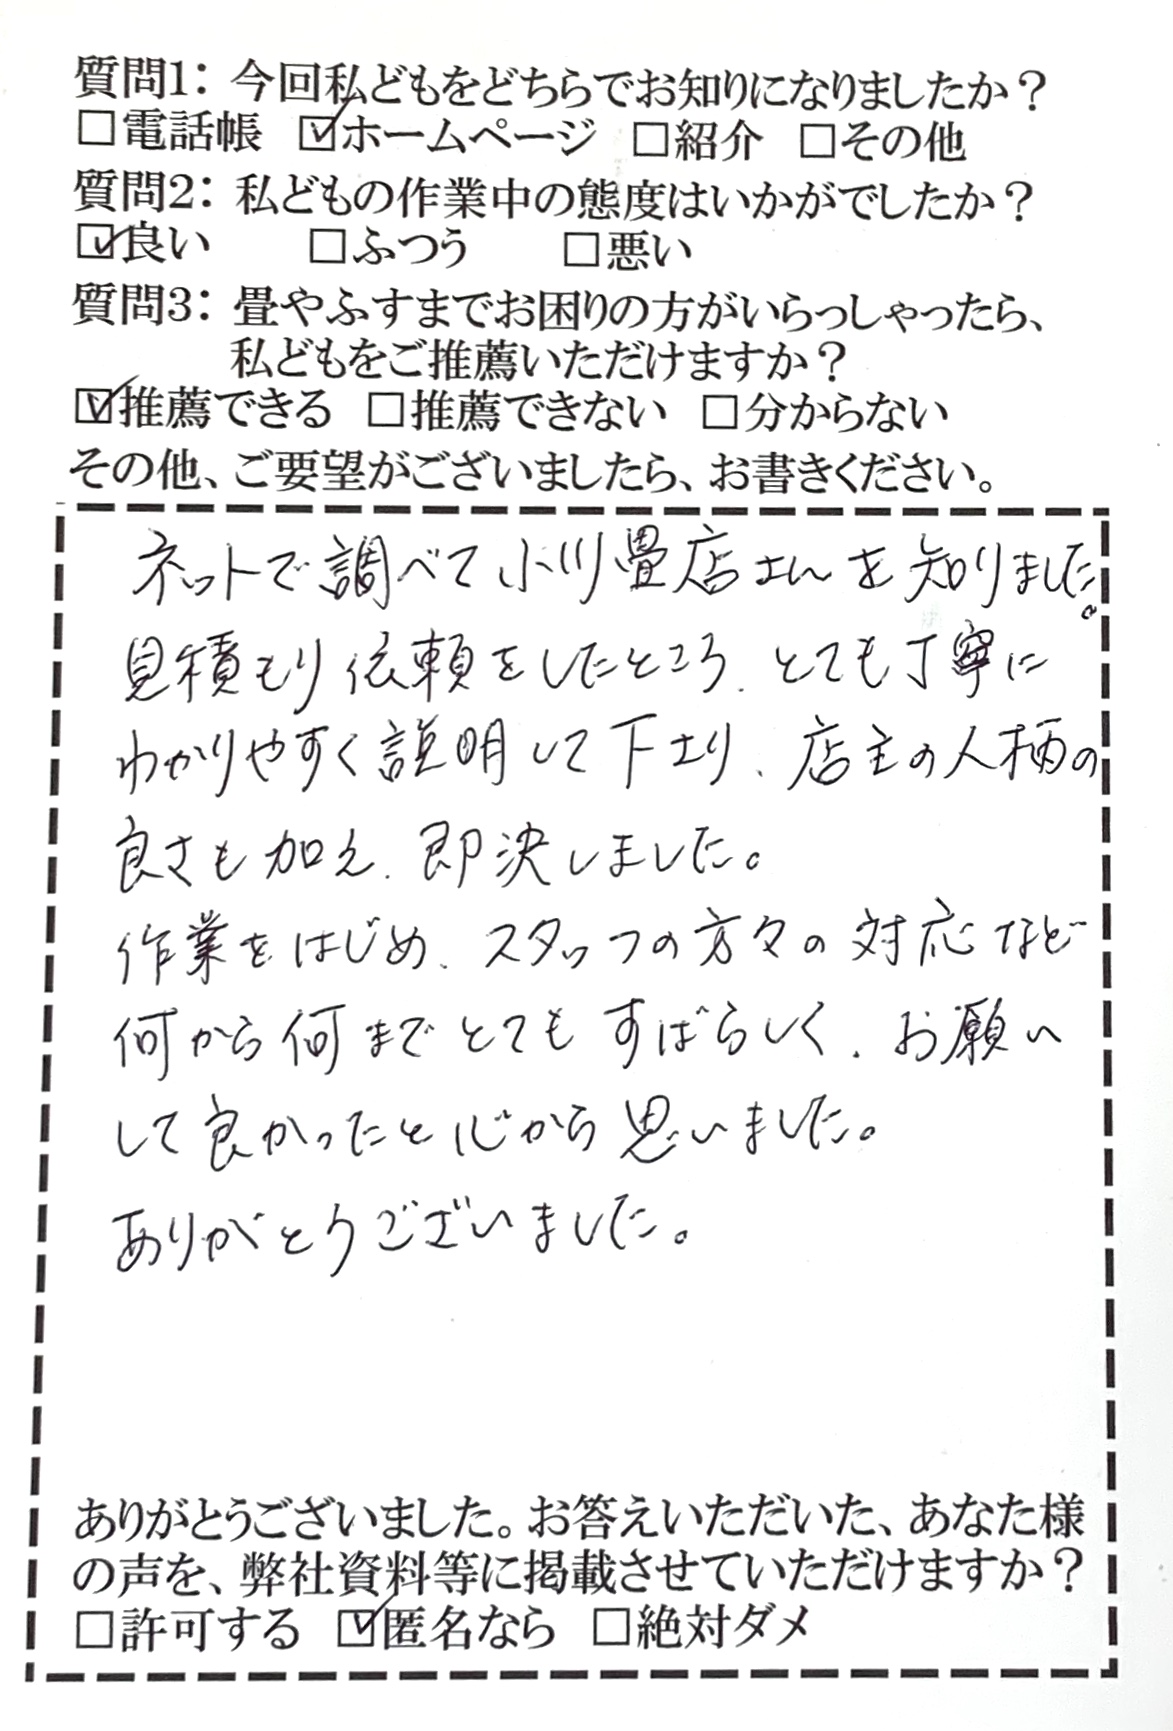 質問1：今回私どもをどちらでお知りになりましたか？
□電話帳 ☑ホームページ □紹介 □その他
質問2：私どもの作業中の態度はいかがでしたか？
☑良い □ふつう □悪い
質問3：畳やふすまでお困りの方がいらっしゃったら、
私どもをご推薦いただけますか？
☑推薦できる □推薦できない □分からない
その他、ご要望がございましたら、お書きください。
ネットで調べて小川畳店さんを知りました。
見積もり依頼をしたところ、とても丁寧に
わかりやすく説明して下さり、店主の人柄の
良さも加え、即決しました。
作業をはじめ、スタッフの方々の対応など
何から何までとてもすばらしく、お願い
して良かったと心から思いました。
ありがとうございました。
ありがとうございました。お答えいただいた、あなた様
の声を、弊社資料等に掲載させていただけますか？
□許可する ☑匿名なら □絶対ダメ